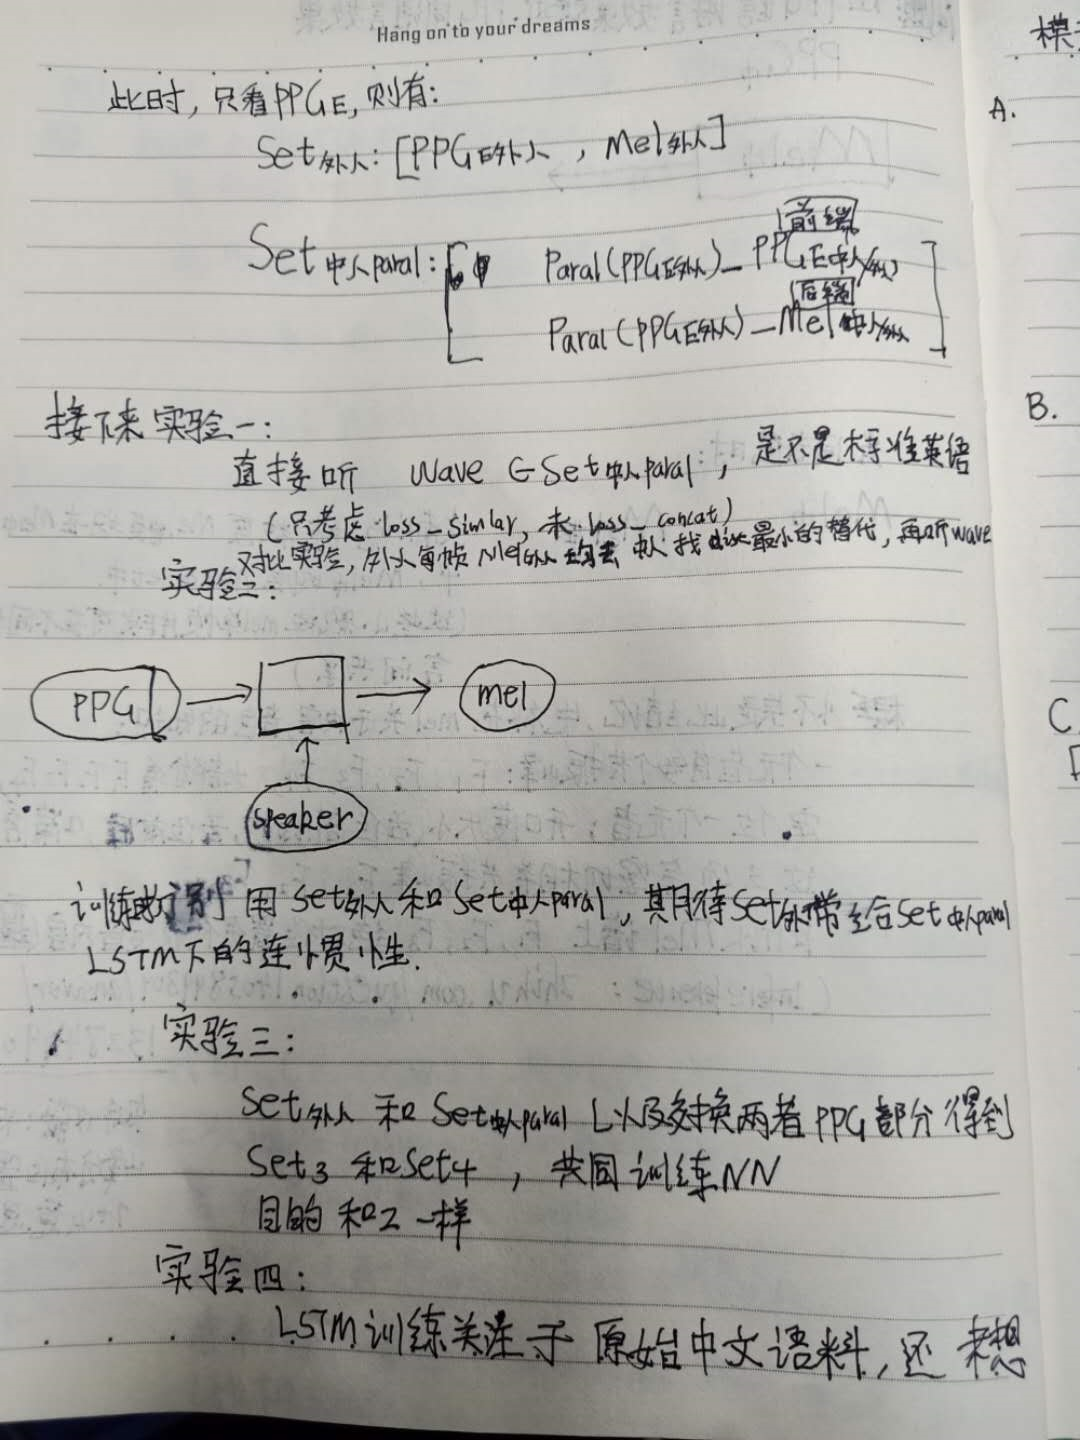 Hang on to your dreams
此时,只看PPGE,则有:
Set外人:[PPGE外人 , Mel外人]
前端
Set中人paral:[ Paral(PPGE外人)_PPGE中人/外人
后端
Paral(PPGE外人)_Mel中人/外人 ]
接下来实验一:
直接听 wave ∈ Set中人paral, 是不是标准英语
(只考虑loss_simlar, 未loss_concat)
对比实验,外人每帧Mel外人 均去 中人找 最小的替代,再听wave
实验二:
PPG
mel
speaker
训练时 别用set外人和Set中人paral,其期待Set外带给Set中人paral
LSTM下的连惯性.
实验三:
Set外人 和 Set中人paral 以及对换两者PPG部分得到
Set3 和Set4 , 共同训练NN
目的和2一样
实验四:
LSTM训练关注于原始中文语料,还未想
模
A.
B.
C